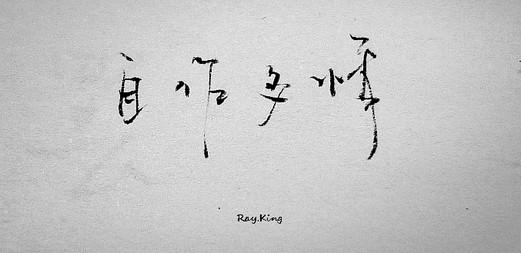 自作多情
Ray.King